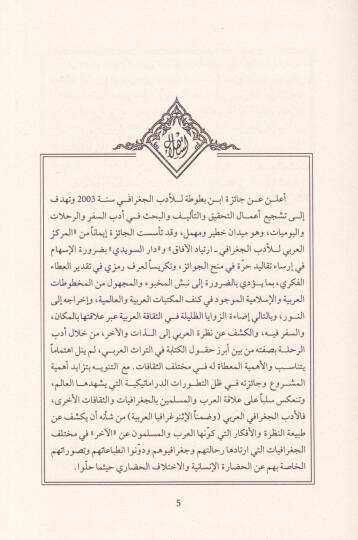 استهلال
أعلن عن جائزة ابن بطوطة للأدب الجغرافي سنة 2003 وتهدف
إلى تشجيع أعمال التحقيق والتأليف والبحث في أدب السفر والرحلات
واليوميات، وهو ميدان خطير ومهمل، وقد تأسست الجائزة إيماناً من «المركز
العربي للأدب الجغرافي ـ ارتياد الآفاق» و«دار السويدي» بضرورة الإسهام
في إرساء تقاليد حرّة في منح الجوائز، وتكريساً لعرف رمزي في تقدير العطاء
الفكري، بما يؤدي بالضرورة إلى نبش المخبوء والمجهول من المخطوطات
العربية والإسلامية الموجود في كنف المكتبات العربية والعالمية، وإخراجه إلى
النور، وبالتالي إضاءة الزوايا الظليلة في الثقافة العربية عبر علاقتها بالمكان،
والسفر فيه، والكشف عن نظرة العربي إلى الذات والآخر، من خلال أدب
الرحلة بصفته من بين أبرز حقول الكتابة في التراث العربي، لم ينل اهتماماً
يتناسب والأهمية المعطاة له في مختلف الثقافات. مع التنويه بتزايد أهمية
المشروع وجائزته في ظل التطورات الدراماتيكية التي يشهدها العالم،
وتنعكس سلباً على علاقة العرب والمسلمين بالجغرافيات والثقافات الأخرى،
فالأدب الجغرافي العربي (وضمناً الإثنوغرافيا العربية) من شأنه أن يكشف عن
طبيعة النظرة والأفكار التي كوّنها العرب والمسلمون عن «الآخر» في مختلف
الجغرافيات التي ارتادها رحالتهم وجغرافيوهم ودوّنوا انطباعاتهم وتصوراتهم
الخاصة بهم عن الحضارة الإنسانية والاختلاف الحضاري حيثما حلّوا.
5